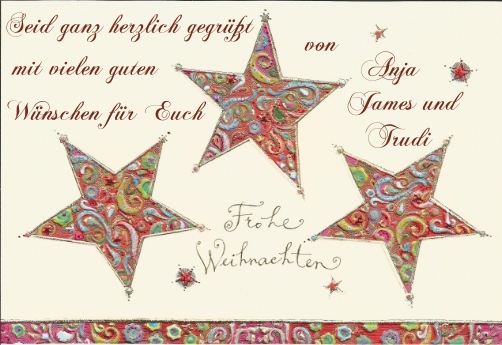 Seid ganz herzlich gegrüßt
mit vielen guten
Wünschen für Euch
von
Anja
James und
Trudi
Frohe
Weihnachten